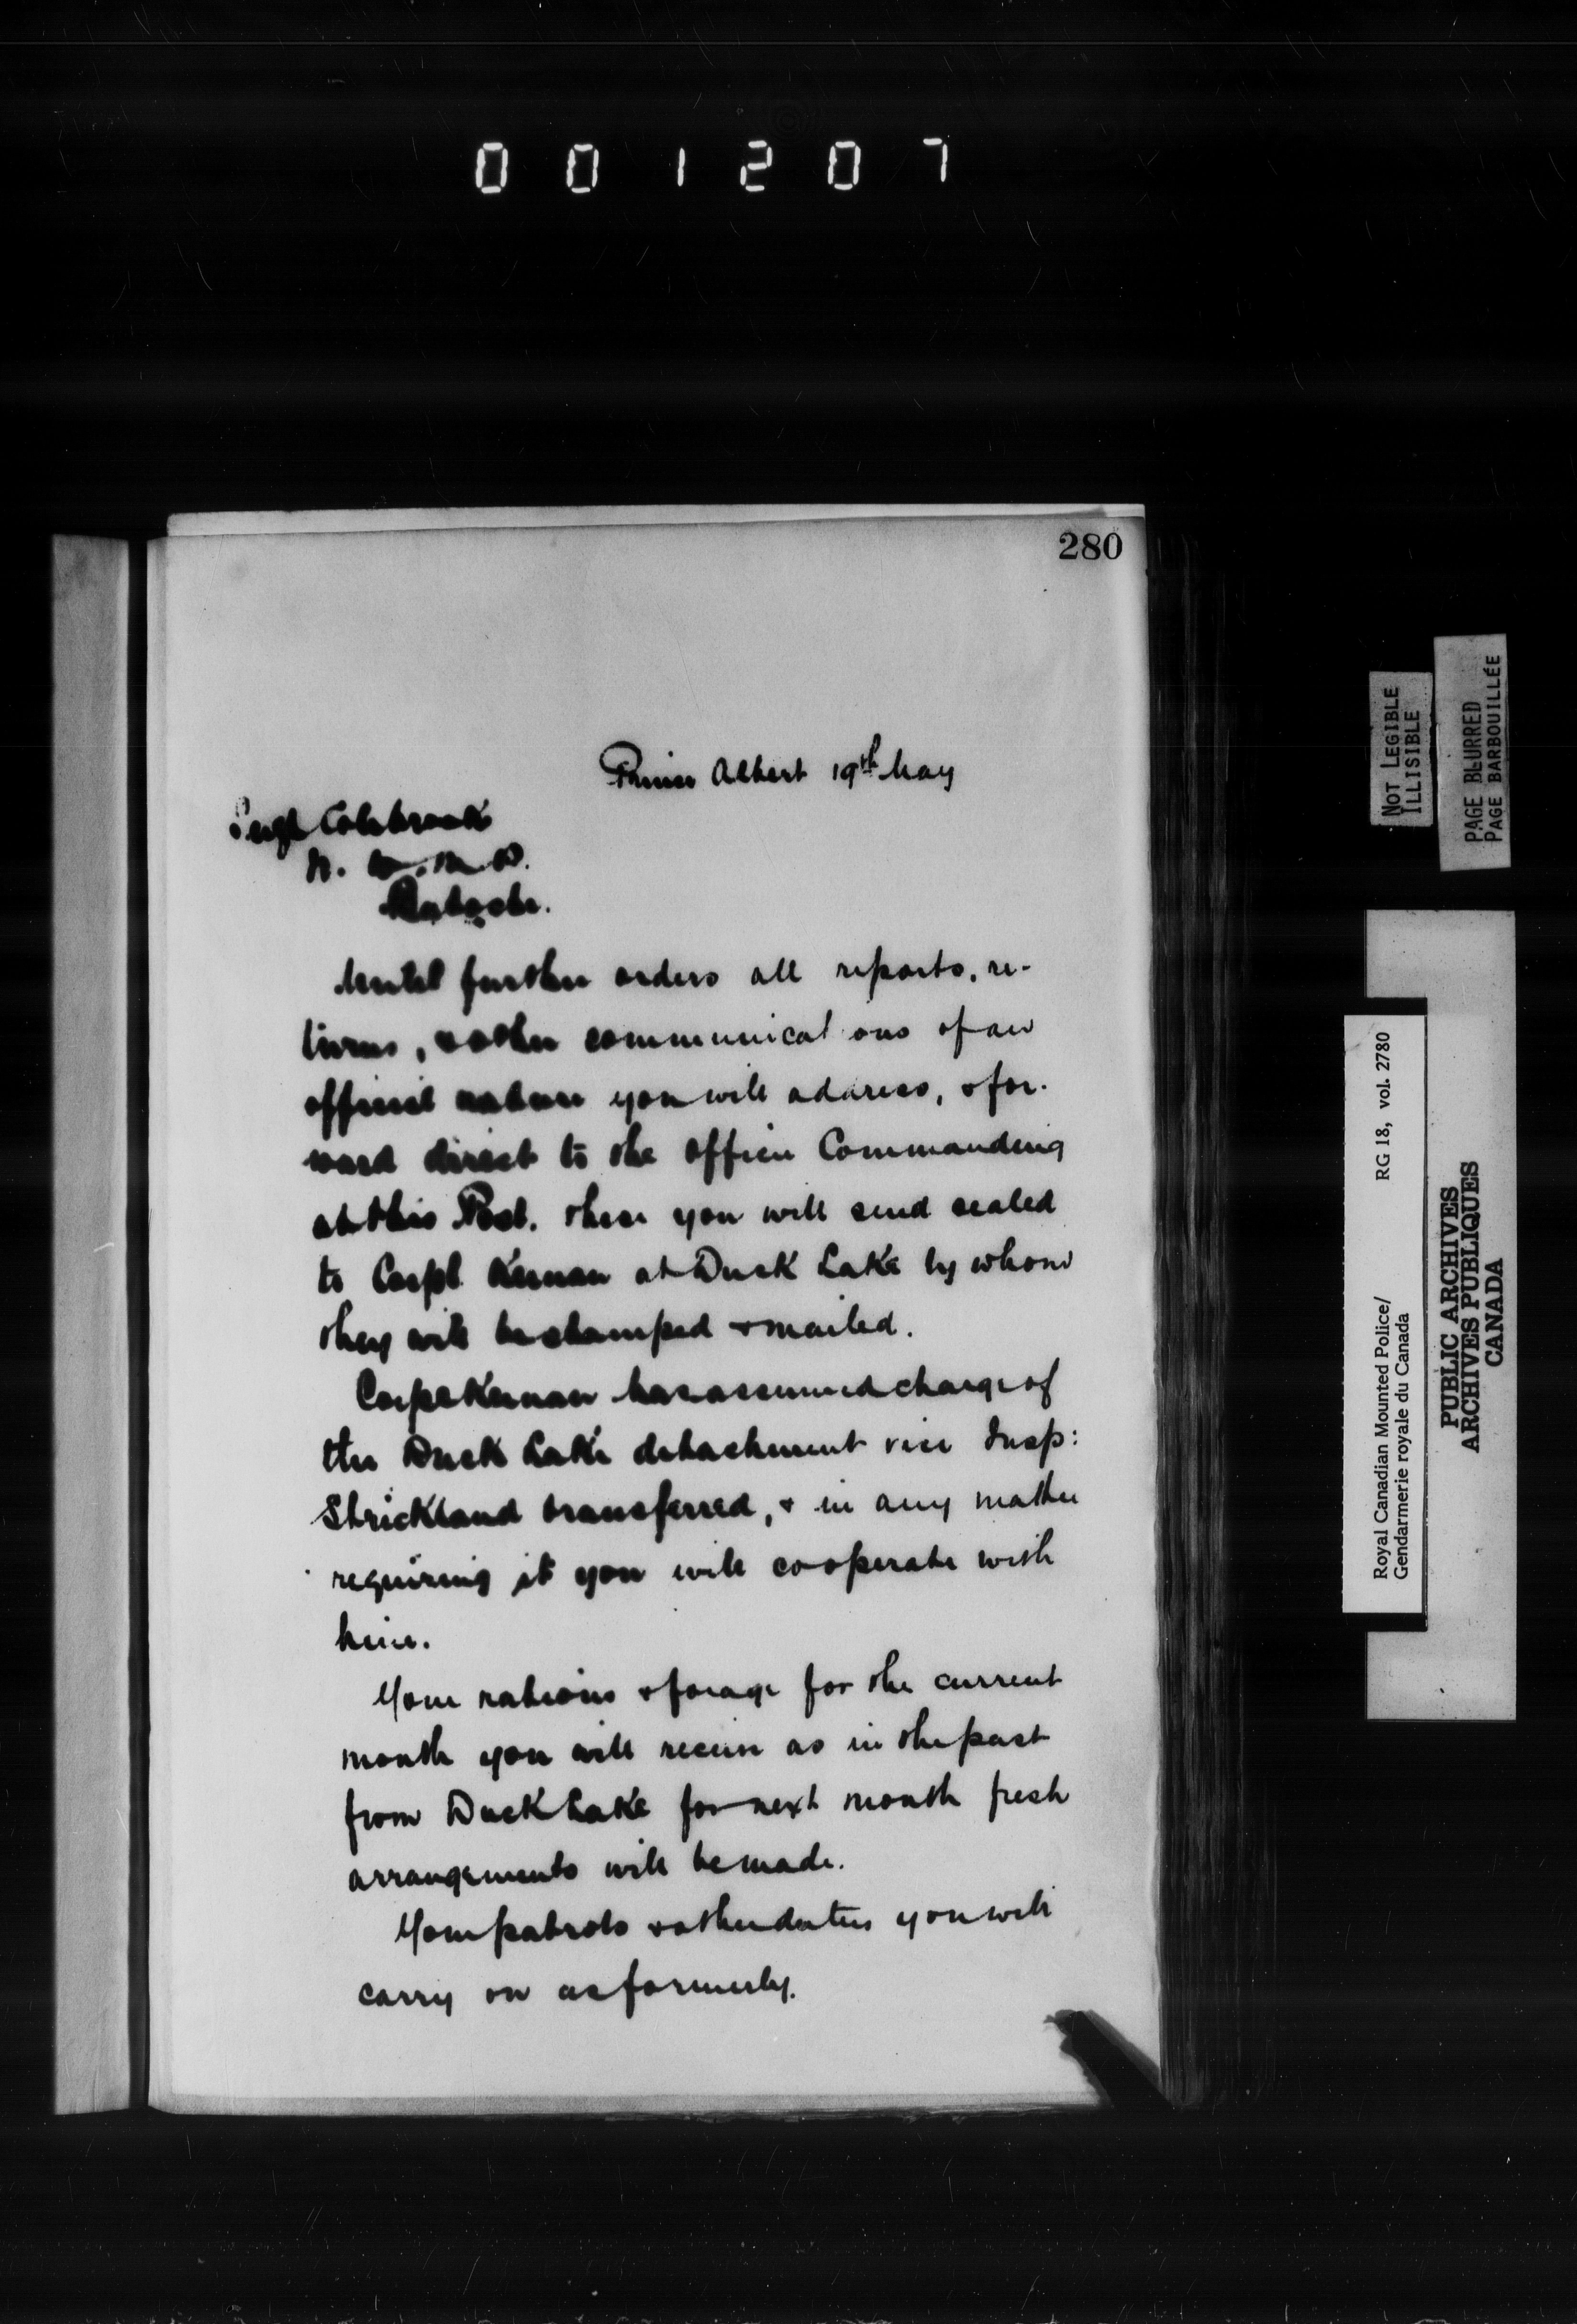 001207
280
Prince Albert 19th May
Sergt Colebrook
N. W. M. P.
Batoche.
Until further orders all reports, re-
turns, & other communications of an
official nature you will address, & for-
ward direct to the Officer Commanding
at this Post. These you will send sealed
to Corpl Keenan at Duck Lake by whom
they will be stamped & mailed.
Corpl Keenan has assumed charge of
the Duck Lake detachment vice Insp:
Strickland transferred, & in any matter
requiring it you will cooperate with
him.
Your rations & forage for the current
month you will receive as in the past
from Duck Lake for next month fresh
arrangements will be made.
Your patrols & other duties you will
carry on as formerly.
NOT LEGIBLE
ILLISIBLE
PAGE BLURRED
PAGE BARBOUILLÉE
Royal Canadian Mounted Police/ RG 18, vol. 2780
Gendarmerie royale du Canada
PUBLIC ARCHIVES
ARCHIVES PUBLIQUES
CANADA